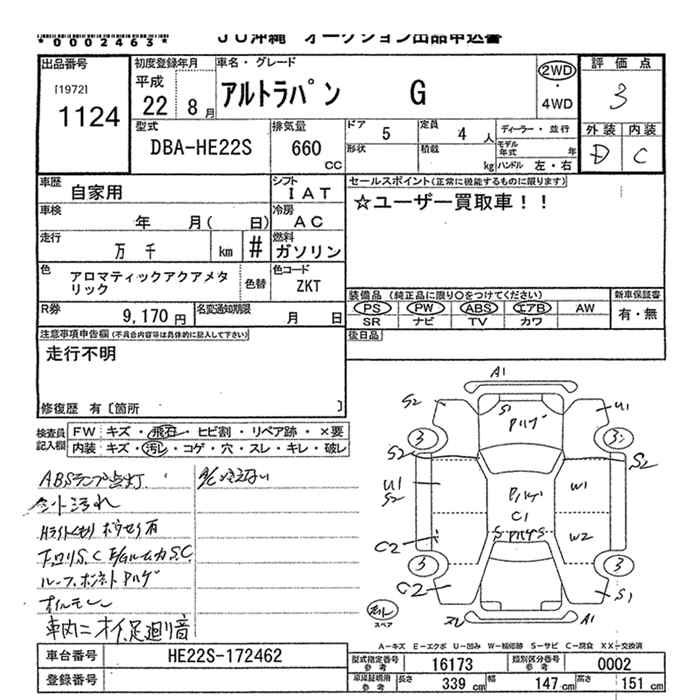 *0002463*
JU沖縄 オークション出品申込書
出品番号
[1972]
1124
初度登録年月
平成
22 8月
車名・グレード
アルトラパン G
2WD
・
4WD
評価点
3
外装 内装
D C
型式
DBA-HE22S
排気量
660
CC
ドア 5
定員 4人
ディーラー・並行
形状
積載 kg
モデル年式 年
ハンドル 左・右
車歴
自家用
シフト
IAT
セールスポイント(正常に機能するものに限ります)
☆ユーザー買取車!!
車検
年 月( 日)
冷房
AC
走行
万 千 km #
燃料
ガソリン
色
アロマティックアクアメタリック
色替
色コード
ZKT
装備品(純正品に限り○をつけてください)
新車保証書
PS PW ABS エアB AW
SR ナビ TV カワ
有・無
R券
9,170円
名変通知期限
月 日
後日品
注意事項申告欄(不具合内容等は具体的に記入して下さい)
走行不明
修復歴 有〔箇所 〕
検査員記入欄
FW キズ・飛石・ヒビ割・リペア跡・×要
内装 キズ・汚レ・コゲ・穴・スレ・キレ・破レ
ABSランプ点灯
A/C冷えない
シート汚れ
Hライトくもり ボウセイ有
下回りS.C E/GルームカS.C
ルーフ、ボンネットPハゲ
オイルモレ
車内ニオイ、足廻り音
A1
S2
S1
Pハゲ
U1
3
3
S2
S2
U1
S2
W1
Pハゲ
C1
C2
W2
3
3
C2
S1
A1
スペア
A-キズ E-エクボ U-凹み W-補修跡 S-サビ C-腐食 XX-交換済
車台番号
HE22S-172462
登録番号
型式指定番号
参考
16173
類別区分番号
参考
0002
車庫証明用
参考
長さ 339cm
幅 147cm
高さ 151cm